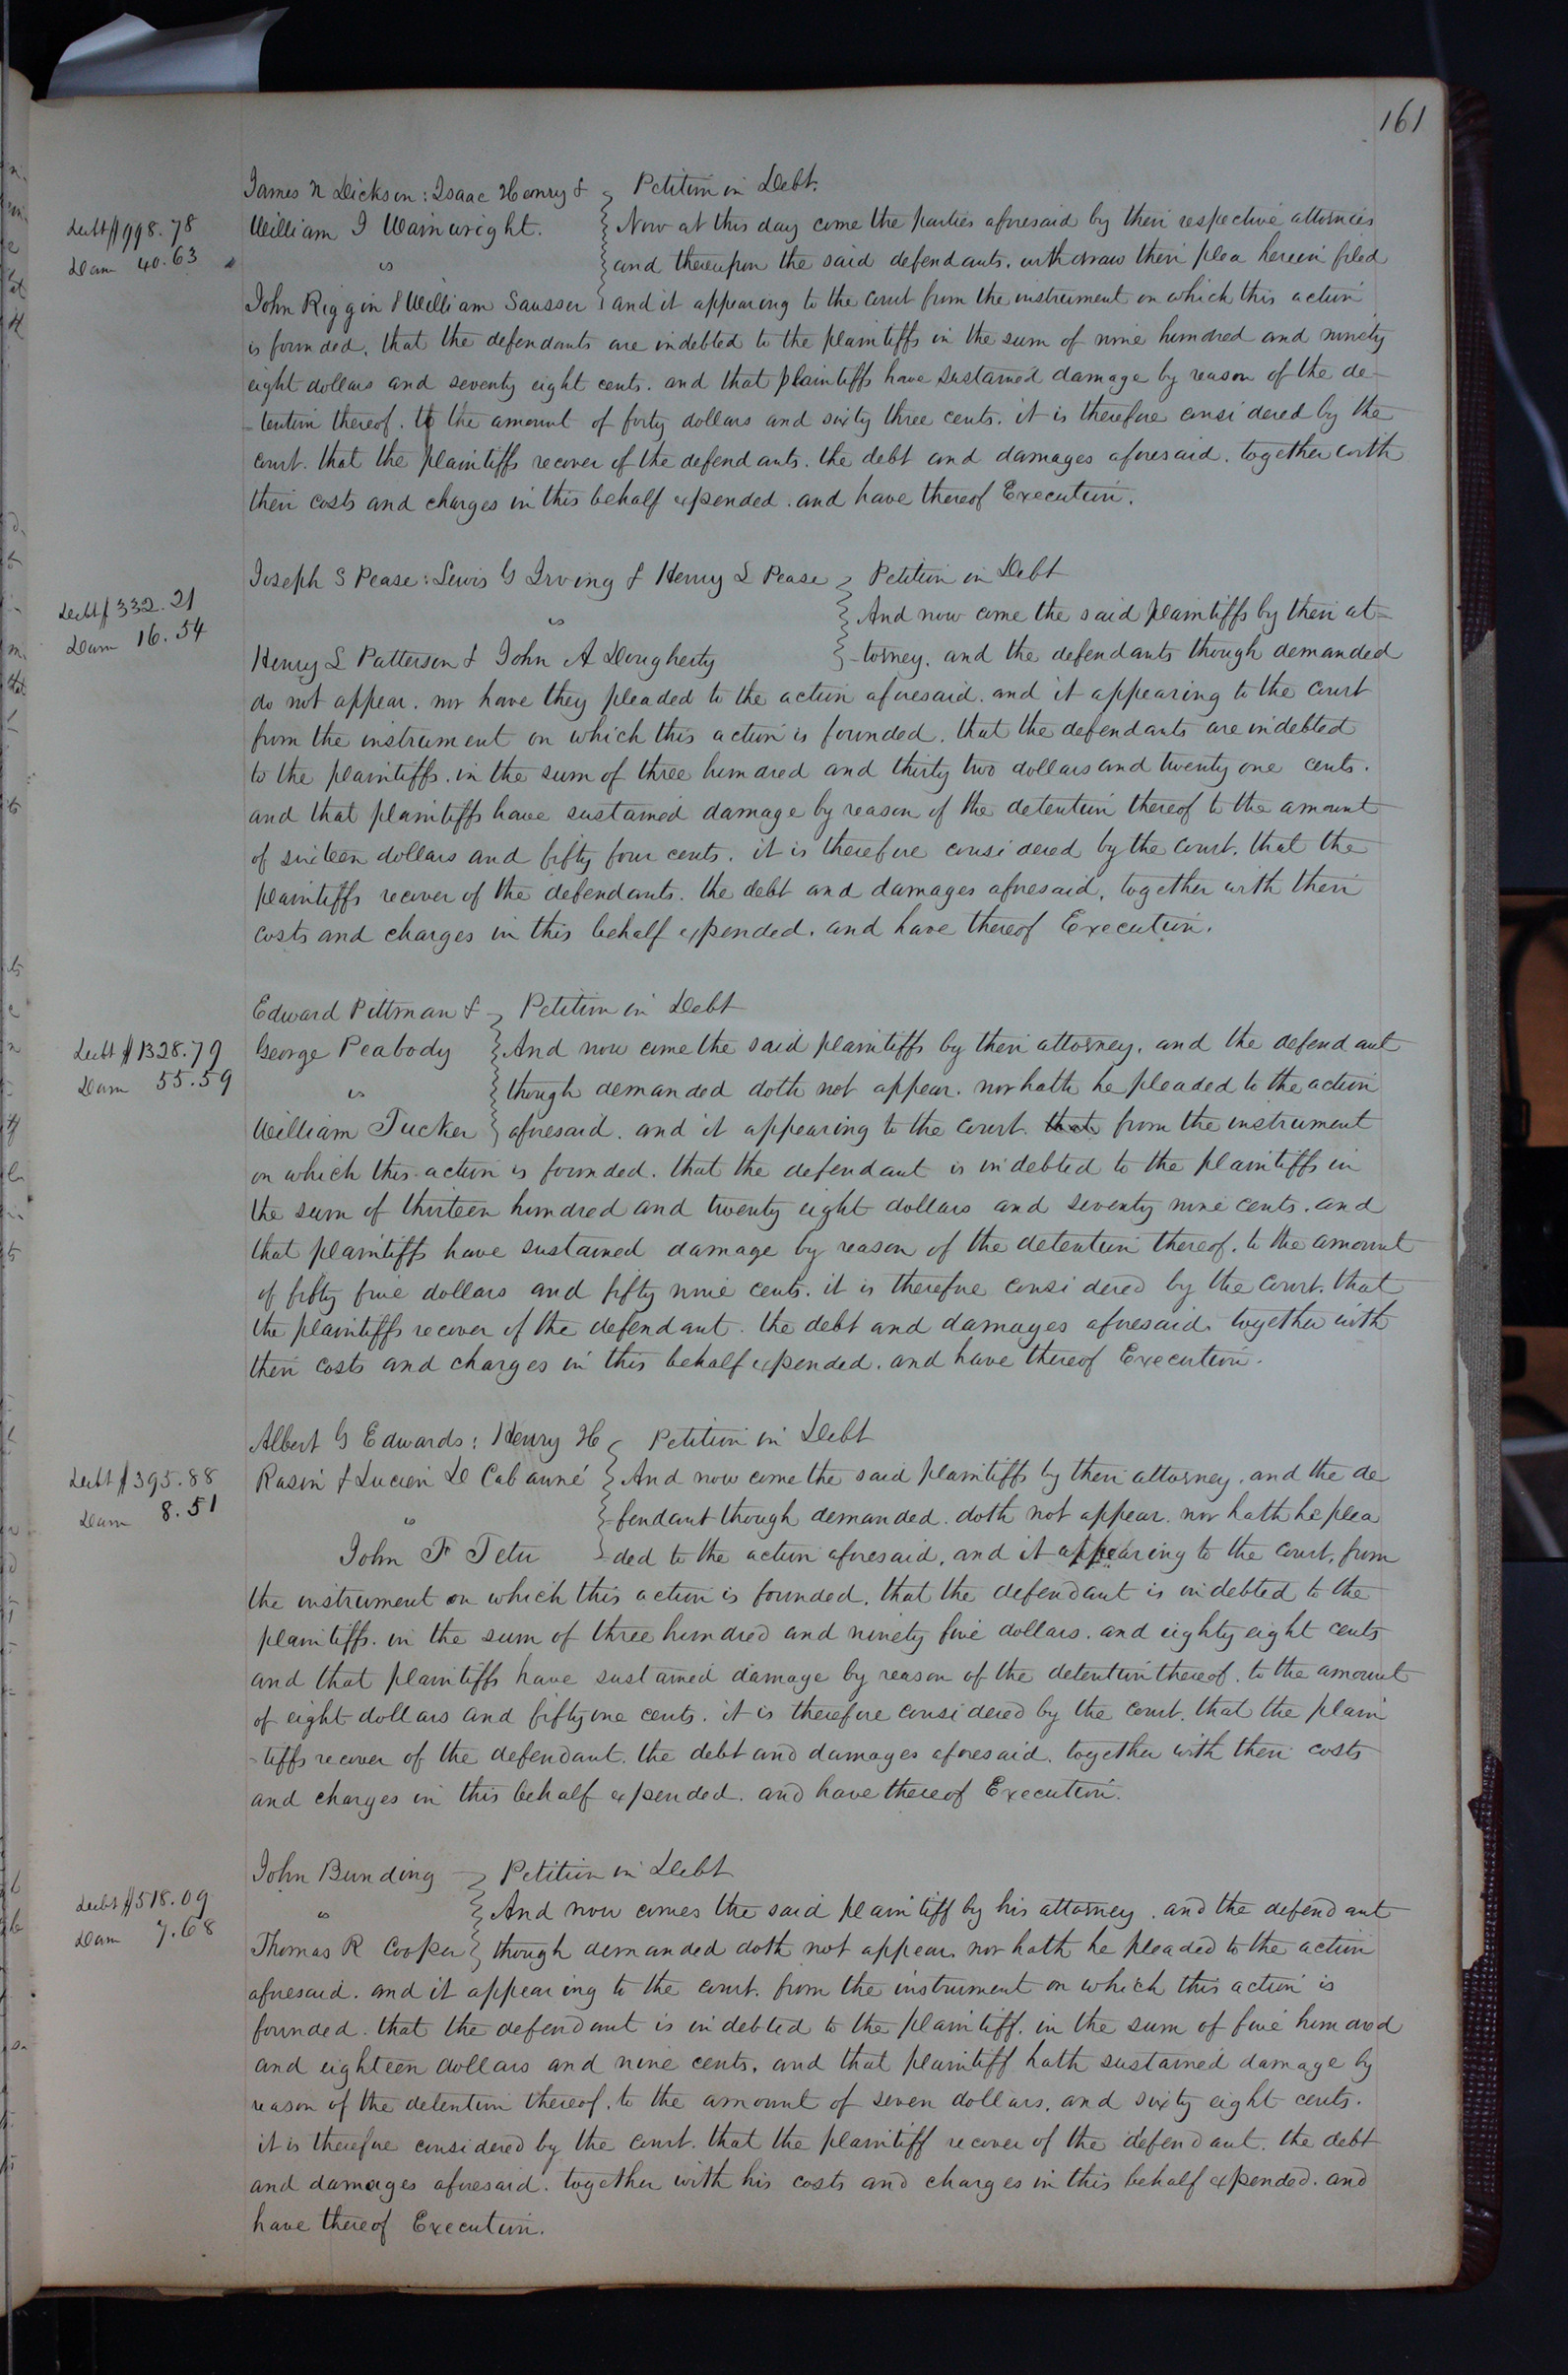 161
James N Dickson : Isaac Henry & } Petition in Debt.
Debt $998.78 William I Wainwright. } Now at this day come the parties aforesaid by their respective attornies
Dam 40.63 vs } and thereupon the said defendants. withdraw their plea herein filed
John Riggin & William Sausser } and it appearing to the court from the instrument on which this action
is founded, that the defendants are indebted to the plaintiffs in the sum of nine hundred and ninety
eight dollars and seventy eight cents. and that plaintiffs have sustained damage by reason of the de-
-tention thereof. to the amount of forty dollars and sixty three cents. it is therefore considered by the
court. that the plaintiffs recover of the defendants. the debt and damages aforesaid. together with
their costs and charges in this behalf expended. and have thereof Execution.
Joseph S Pease : Lewis G Irving & Henry L Pease } Petition in Debt
Debt $332.21 vs } And now come the said plaintiffs by their at=
Dam 16.54 Henry L Patterson & John A Dougherty } -torney. and the defendants though demanded
do not appear. nor have they pleaded to the action aforesaid. and it appearing to the court
from the instrument on which this action is founded. that the defendants are indebted
to the plaintiffs. in the sum of three hundred and thirty two dollars and twenty one cents.
and that plaintiffs have sustained damage by reason of the detention thereof to the amount
of sixteen dollars and fifty four cents. it is therefore considered by the court. that the
plaintiffs recover of the defendants. the debt and damages aforesaid, together with their
costs and charges in this behalf expended. and have thereof Execution.
Edward Pittman & } Petition in Debt
Debt $1328.79 George Peabody } And now come the said plaintiffs by their attorney. and the defendant
Dam 55.59 vs } though demanded doth not appear. nor hath he pleaded to the action
William Tucker } aforesaid. and it appearing to the court. that from the instrument
on which this action is founded. that the defendant is indebted to the plaintiffs in
the sum of thirteen hundred and twenty eight dollars and seventy nine cents. and
that plaintiffs have sustained damage by reason of the detention thereof. to the amount
of fifty five dollars and fifty nine cents. it is therefore considered by the court. that
the plaintiffs recover of the defendant. the debt and damages aforesaid. together with
their costs and charges in this behalf expended. and have thereof Execution.
Albert G Edwards : Henry H } Petition in Debt
Debt $395.88 Rasin & Lucien D Cabanné } And now come the said plaintiffs by their attorney. and the de
Dam 8.51 vs } -fendant though demanded. doth not appear. nor hath he plea
John F Tetu } -ded to the action aforesaid, and it appearing to the court, from
the instrument on which this action is founded. that the defendant is indebted to the
plaintiffs. in the sum of three hundred and ninety five dollars. and eighty eight cents
and that plaintiffs have sustained damage by reason of the detention thereof. to the amount
of eight dollars and fifty one cents. it is therefore considered by the court. that the plain
-tiffs recover of the defendant. the debt and damages aforesaid. together with their costs
and charges in this behalf expended. and have thereof Execution.
John Bunding } Petition in Debt
Debt $518.09 vs } And now comes the said plaintiff by his attorney. and the defendant
Dam 7.68 Thomas R Cooper } though demanded doth not appear. nor hath he pleaded to the action
aforesaid. and it appearing to the court. from the instrument on which this action is
founded. that the defendant is indebted to the plaintiff. in the sum of five hundred
and eighteen dollars and nine cents. and that plaintiff hath sustained damage by
reason of the detention thereof. to the amount of seven dollars. and sixty eight cents.
it is therefore considered by the court. that the plaintiff recover of the defendant. the debt
and damages aforesaid. together with his costs and charges in this behalf expended. and
have thereof Execution.